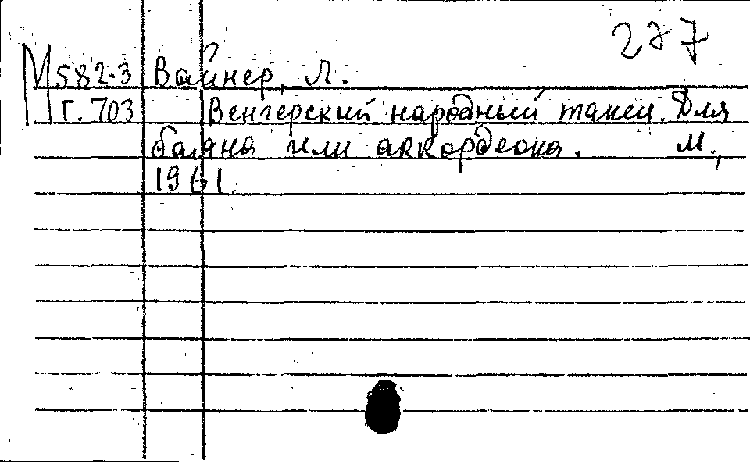 277
М582-3 Вайнер, Л.
Г. 703 Венгерский народный танец. Для
баяна или аккордеона. М.,
1961.